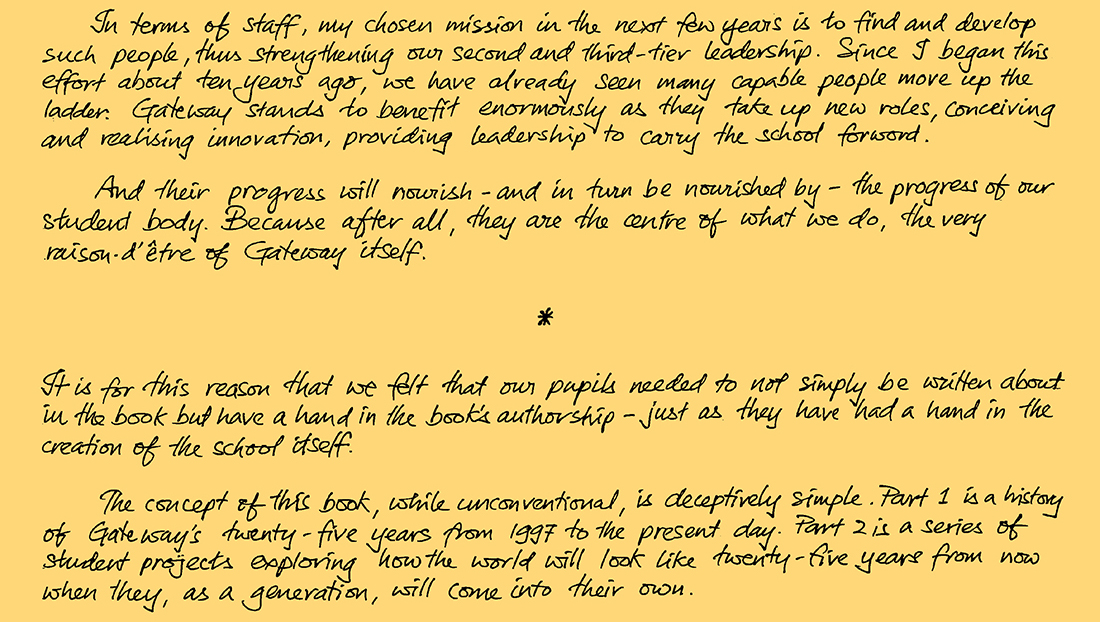 In terms of staff, my chosen mission in the next few years is to find and develop
such people, thus strengthening our second and third-tier leadership. Since I began this
effort about ten years ago, we have already seen many capable people move up the
ladder. Gateway stands to benefit enormously as they take up new roles, conceiving
and realising innovation, providing leadership to carry the school forward.
And their progress will nourish - and in turn be nourished by - the progress of our
student body. Because after all, they are the centre of what we do, the very
raison-d'être of Gateway itself.
*
It is for this reason that we felt that our pupils needed to not simply be written about
in the book but have a hand in the book's authorship - just as they have had a hand in the
creation of the school itself.
The concept of this book, while unconventional, is deceptively simple. Part 1 is a history
of Gateway's twenty-five years from 1997 to the present day. Part 2 is a series of
student projects exploring how the world will look like twenty-five years from now
when they, as a generation, will come into their own.